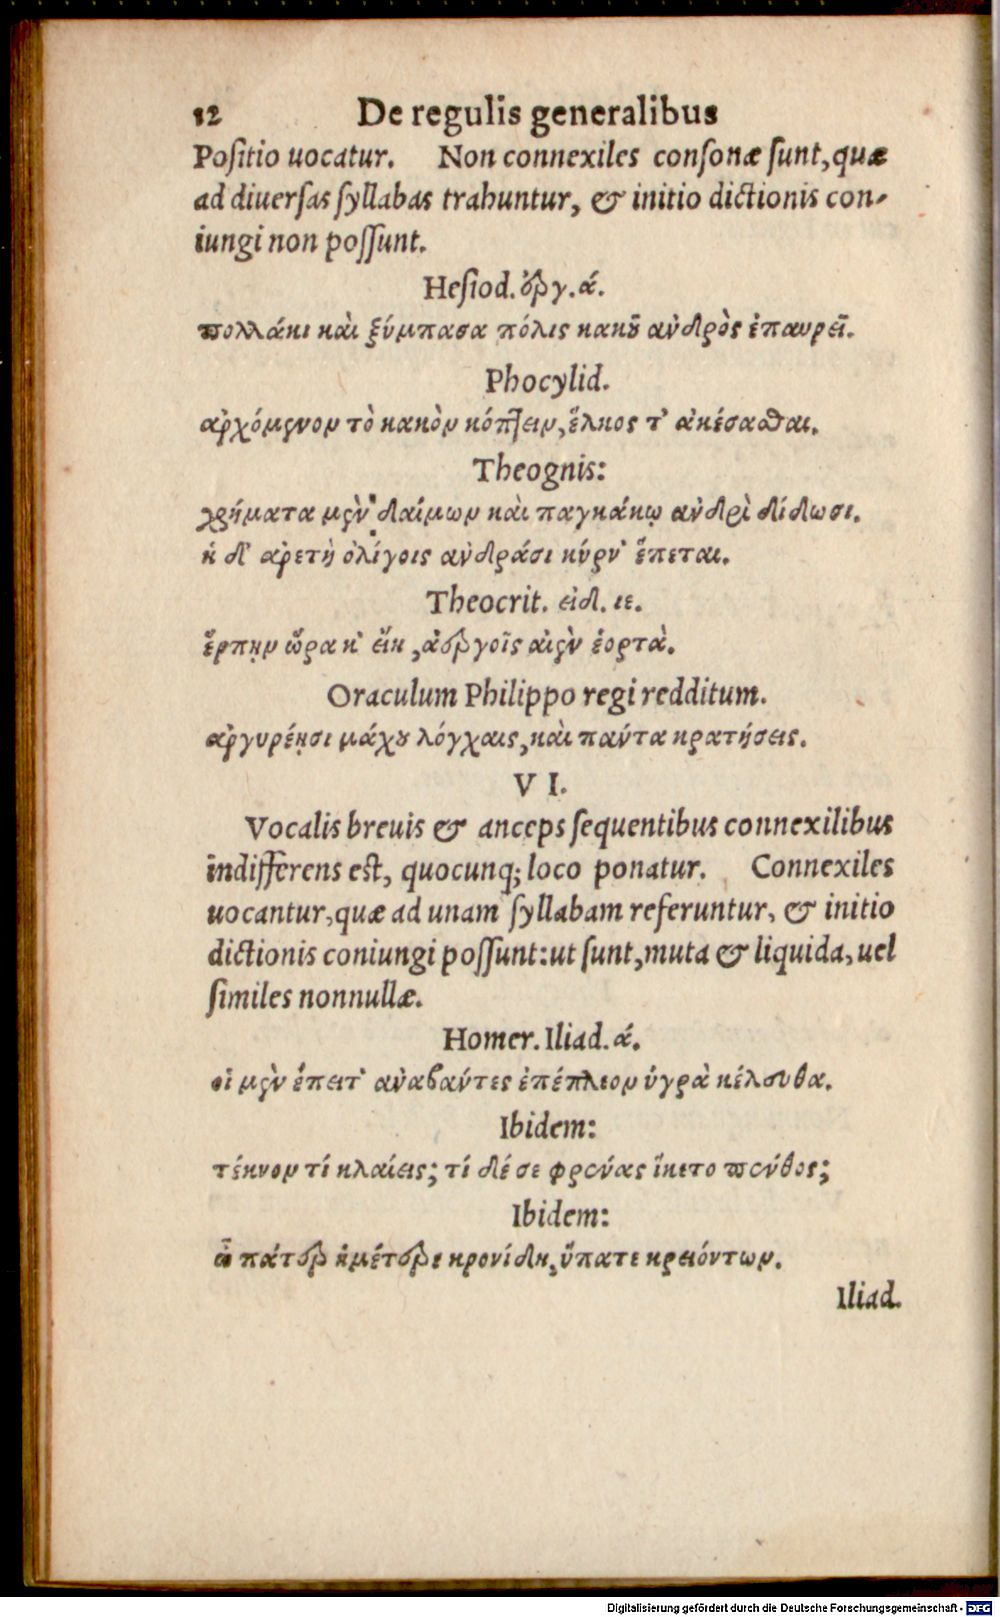 12 De regulis generalibus
Positio uocatur. Non connexiles consonæ sunt, quæ
ad diuersas syllabas trahuntur, & initio dictionis con-
iungi non possunt.
Hesiod. ἔργ. ά.
πολλάκι καὶ ξύμπασα πόλις κακοῦ ἀνδρὸς ἐπαυρεῖ.
Phocylid.
ἀρχόμενον τὸ κακὸν κόπτειν, ἕλκος τ' ἀκέσασθαι.
Theognis:
χρήματα μὲν δαίμων καὶ παγκάκῳ ἀνδρὶ δίδωσι.
ἡ δ' ἀρετὴ ὀλίγοις ἀνδράσι κύρν' ἕπεται.
Theocrit. εἰδ. ιε.
ἕρπην ὥρα κ' εἴη, ἀεργοῖς αἰὲν ἑορτὰ.
Oraculum Philippo regi redditum.
ἀργυρέῃσι μάχου λόγχαις, καὶ πάντα κρατήσεις.
VI.
Vocalis breuis & anceps sequentibus connexilibus
indifferens est, quocunq; loco ponatur. Connexiles
uocantur, quæ ad unam syllabam referuntur, & initio
dictionis coniungi possunt: ut sunt, muta & liquida, uel
similes nonnullæ.
Homer. Iliad. ά.
οἱ μὲν ἔπειτ' ἀναβάντες ἐπέπλεον ὑγρὰ κέλευθα.
Ibidem:
τέκνον τί κλαίεις; τί δέ σε φρένας ἵκετο πένθος;
Ibidem:
ὦ πάτερ ἡμέτερε κρονίδη, ὕπατε κρειόντων.
Iliad.
Digitalisierung gefördert durch die Deutsche Forschungsgemeinschaft - DFG